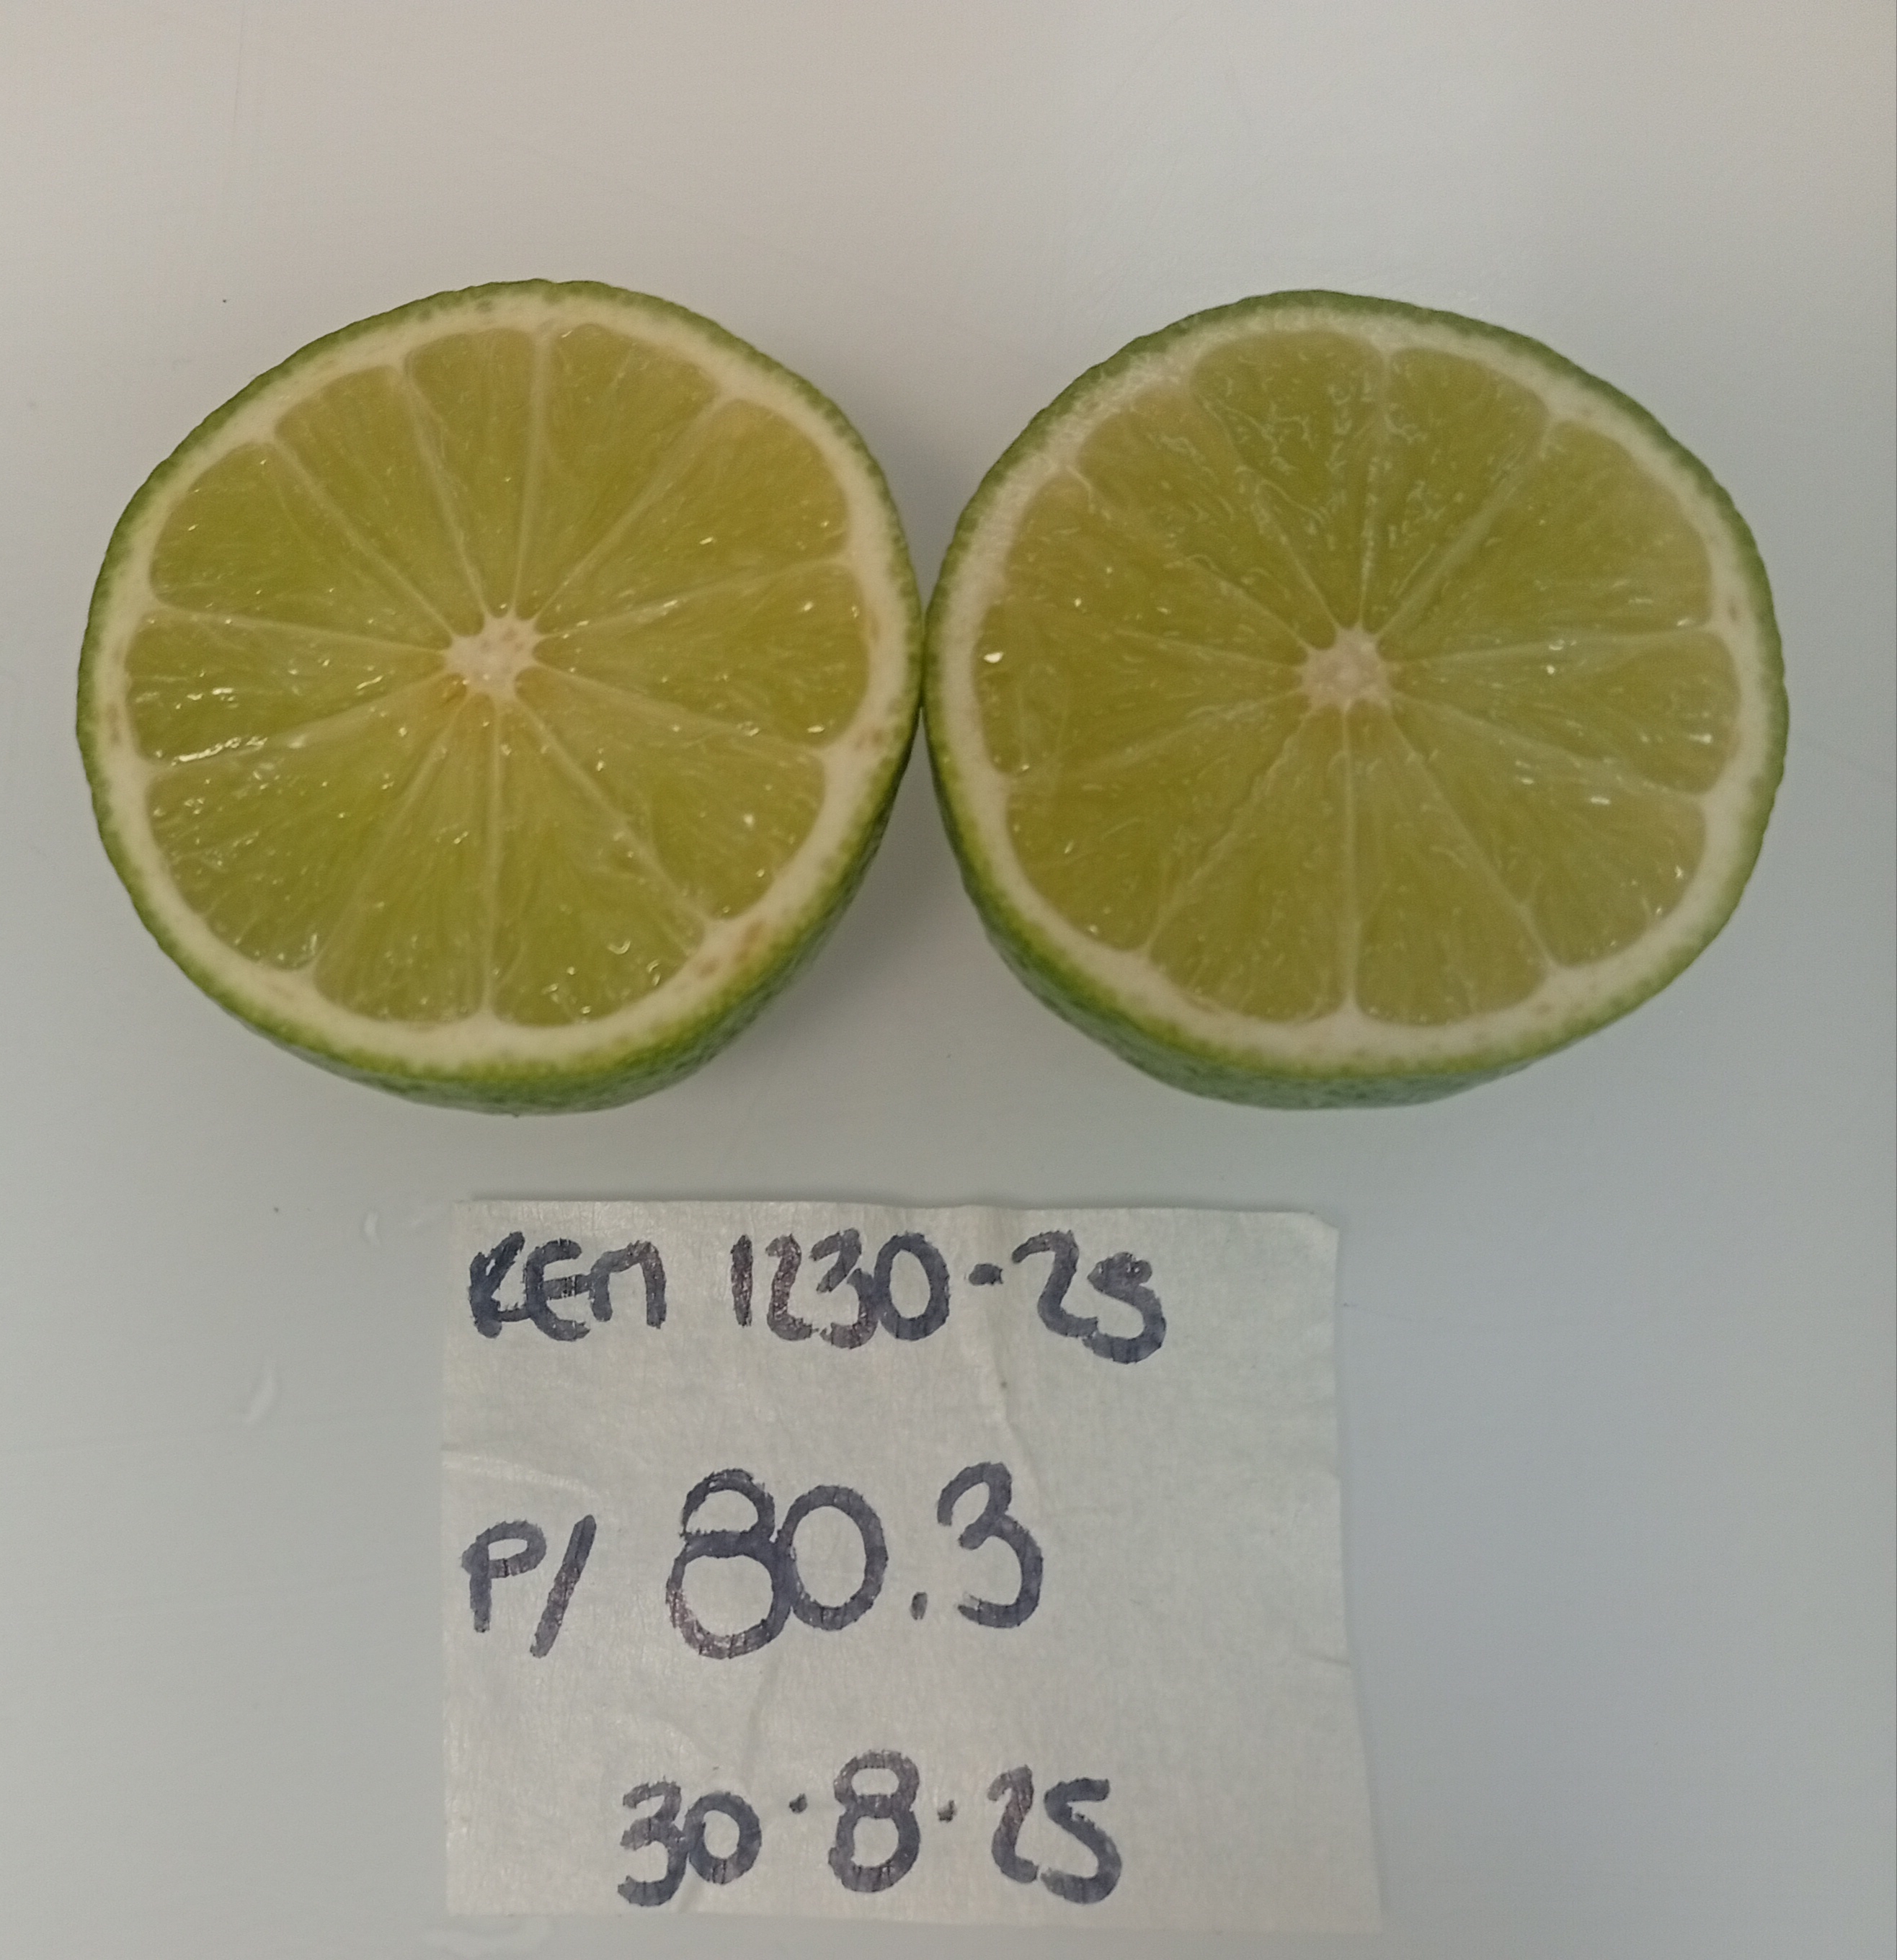 REM 1230-25
P/ 80.3
30.8.25